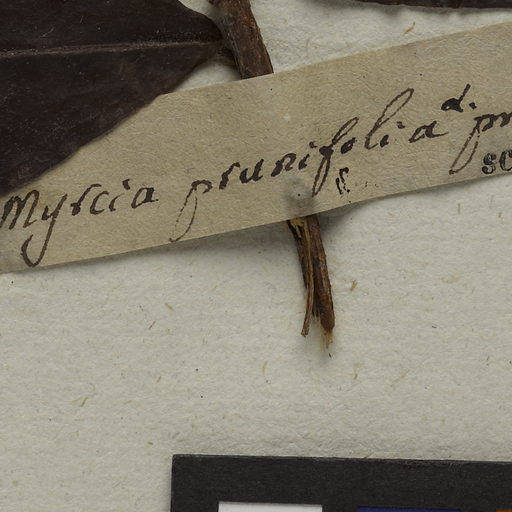 Myrcia prunifolia d. pr
SC